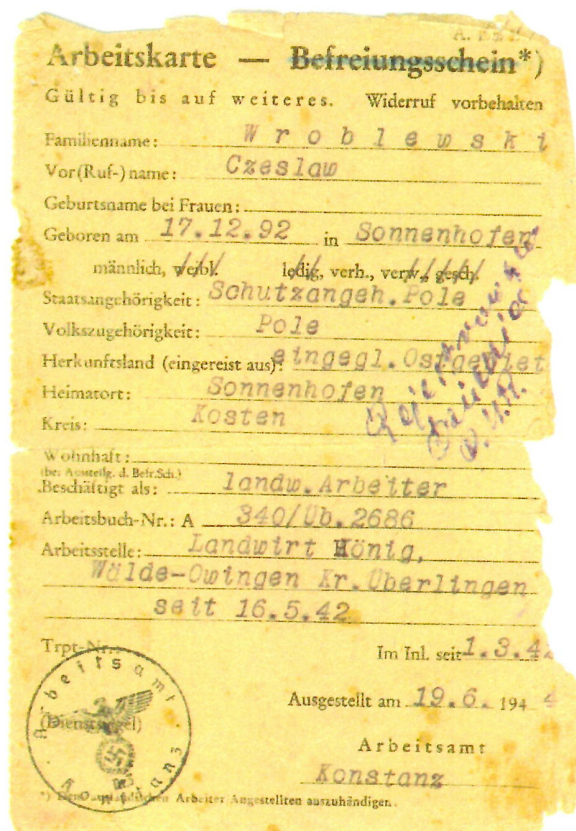 Arbeitskarte — Befreiungsschein*)
Gültig bis auf weiteres. Widerruf vorbehalten
Familienname: Wroblewski
Vor(Ruf-)name: Czeslaw
Geburtsname bei Frauen:
Geboren am 17.12.92 in Sonnenhofen
männlich, weibl. ledig, verh., verw., gesch.
Staatsangehörigkeit: Schutzangeh. Pole
Volkszugehörigkeit: Pole
Herkunftsland (eingereist aus): eingegl. Ostgebiet
Heimatort: Sonnenhofen
Kreis: Kosten
Wohnhaft:
(bei Ausstellg. d. Befr.Sch.)
Beschäftigt als: landw. Arbeiter
Arbeitsbuch-Nr.: A 340/Üb.2686
Arbeitsstelle: Landwirt Hönig,
Wälde-Owingen Kr. Überlingen
seit 16.5.42
Trpt-Nr.:
Im Inl. seit 1.3.42
Ausgestellt am 19.6. 194 4
(Dienstsiegel)
Arbeitsamt
Konstanz
Arbeitsamt Konstanz
*) Arbeiter Angestellten auszuhändigen.